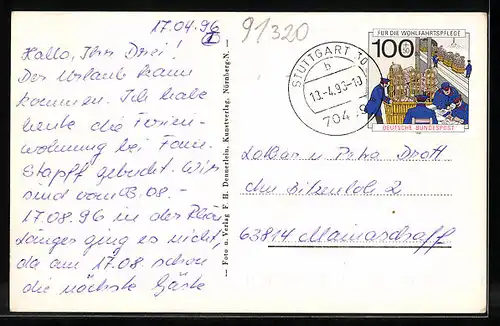 17.04.96
91320
Hallo, Ihr Drei!
Der Urlaub kann
kommen. Ich habe
heute die Ferien-
wohnung bei Fam.
Stapff gebucht. Wir
sind vom 03.08.-
17.08.96 in der
länger ging es nicht,
da am 17.08 schon
die nächste Gäste
— Foto u. Verlag F. H. Dennerlein, Kunstverlag, Nürnberg-N. —
STUTTGART 30
b
704
FÜR DIE WOHLFAHRTSPFLEGE
100
DEUTSCHE BUNDESPOST
Lothar u. Petra Drott
2
63814 Mainaschaff